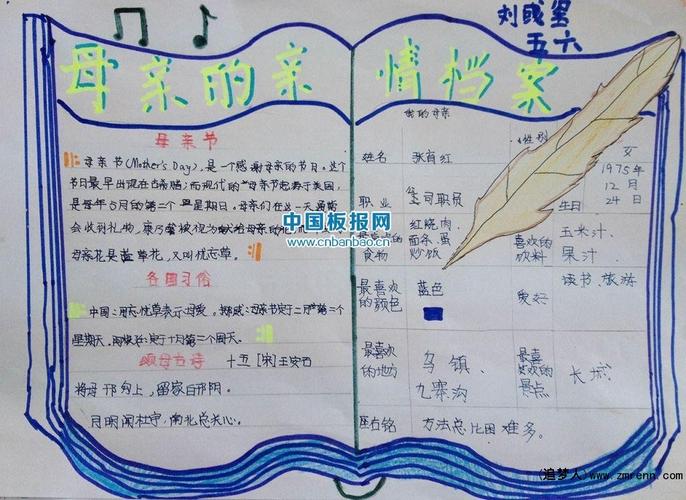 刘彧
五六
母亲的亲情档案
母亲节
母亲节(Mother's Day),是一个感谢母亲的节日。这个
节日最早出现在古希腊;而现代的"母亲节起源于美国,
是每年5月的第二个星期日。母亲们在这一天通常
会收到礼物,康乃馨被视为献给母亲的花,
母亲花是萱草花,又叫忘忧草。
各国习俗
中国:用忘忧草表示母爱。挪威:母亲节定于二月第二个
星期天。
颂母古诗
十五 [宋]王安石
将母邗沟上,留家白邗阴。
月明闻杜宇,南北总关心。
我的母亲
姓名 张育红 性别 女
职业 公司职员 生日 1975年12月24日
食物 红烧肉、面条、蛋炒饭 喜欢的饮料 玉米汁、果汁
最喜欢的颜色 蓝色 爱好 读书、旅游
最喜欢的地方 乌镇、九寨沟 最喜欢的景点 长城
座右铭 方法总比困难多。
中国板报网
www.cnbanbao.cn
(追梦人)www.zmrenn.com